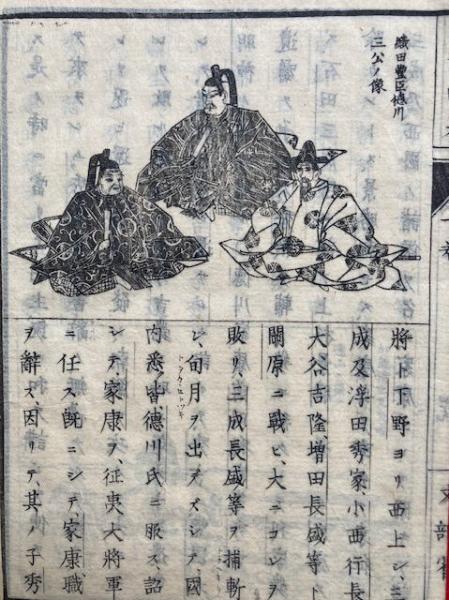 織田豊臣徳川
三公ノ像
將ト下野ヨリ西上シ、三
成及浮田秀家、小西行長
大谷吉隆、増田長盛等ト
關原ニ戰ヒ、大ニコレヲ
敗リ、三成長盛等ヲ捕斬
シ、旬月ヲ出デズシテ、國
内悉ク皆德川氏ニ服ス、詔
シテ家康ヲ、征夷大將軍
ニ任ス、既ニシテ、家康職
ヲ辭ス、因リテ、其ノ子秀
文部省